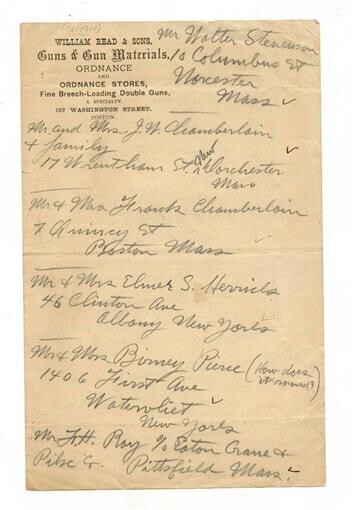 WILLIAM READ & SONS,
Guns & Gun Materials,
ORDNANCE
AND
ORDNANCE STORES,
Fine Breech-Loading Double Guns,
A SPECIALTY.
107 WASHINGTON STREET,
BOSTON.
Mr Walter Stevenson
10 Columbus St
Worcester
Mass ✓
Mr. and Mrs. J. W. Chamberlain
& family
17 Wrentham St. Dorchester
Mass
Mr & Mrs Frank Chamberlain
7 Quincy St
Boston Mass
Mr & Mrs Elmer S. Herrick
46 Clinton Ave
Albany New York
Mr & Mrs Borney Pierce (How does it sound?)
1406 First Ave
Watervliet
New York
Mr F. H. Roy c/o Eaton Crane &
Pike Co. Pittsfield Mass.